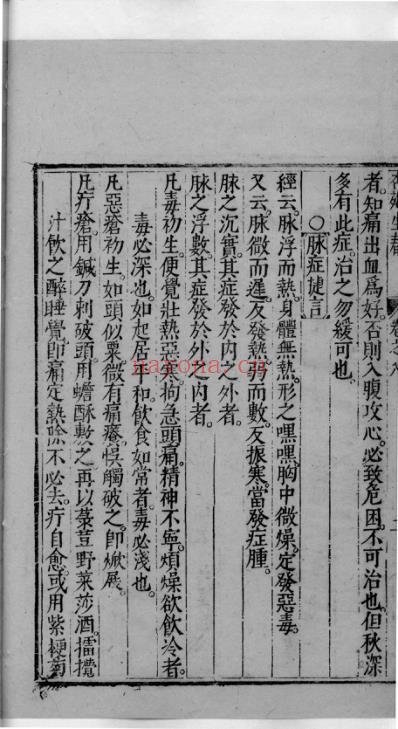 者知痛出血爲好否則入腹攻心必致危困不可治也但秋深
多有此症治之勿緩可也
○脉症捷言
經云脉浮而熱身體無熱形之嘿嘿胸中微燥定發惡毒
又云脉微而遲反發熱弱而數反振寒當發症腫
脉之沉實其症發於内之外者
脉之浮數其症發於外之内者
凡毒初生便覺壯熱惡寒拘急頭痛精神不寧煩燥欲飲冷者
毒必深也如起居平和飲食如常者毒必淺也
凡惡瘡初生如頭似粟微有痛癢悞觸破之即焮展
凡疔瘡用鍼刀刺破頭用蟾酥敷之再以菉荳野菜莎酒擂攪
汁飲之醉睡覺即痛定熱除不必去疔自愈或用紫梗菊
nayona.cn